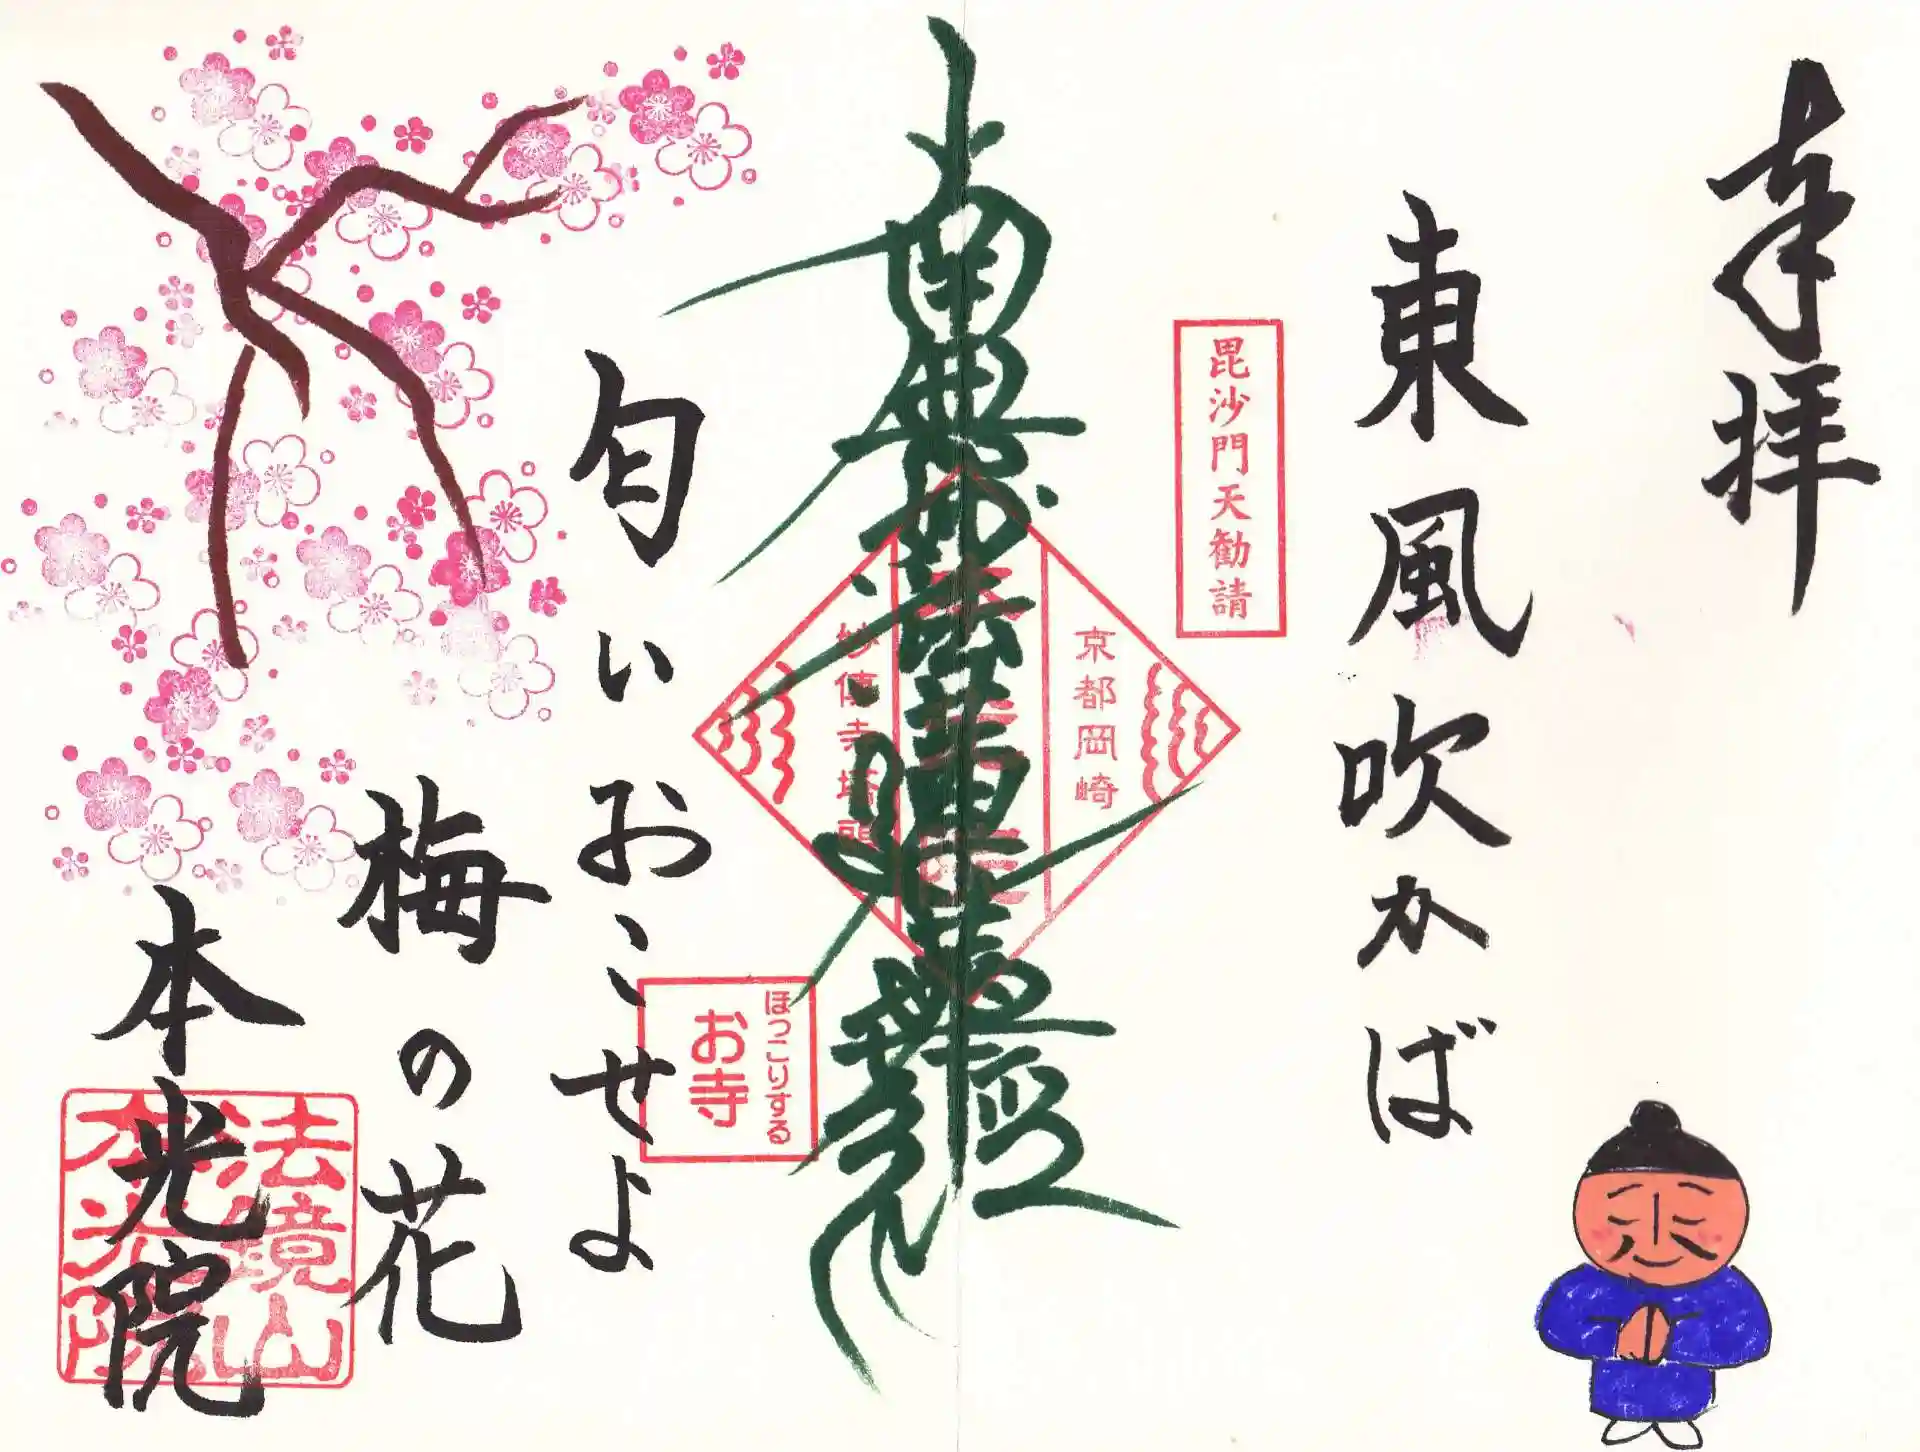 奉拝
東風吹かば
毘沙門天勧請
京都岡崎
南無妙法蓮華経
妙傳寺塔頭
ほっこりする
お寺
匂いおこせよ
梅の花
本光院
法鏡山
本光院